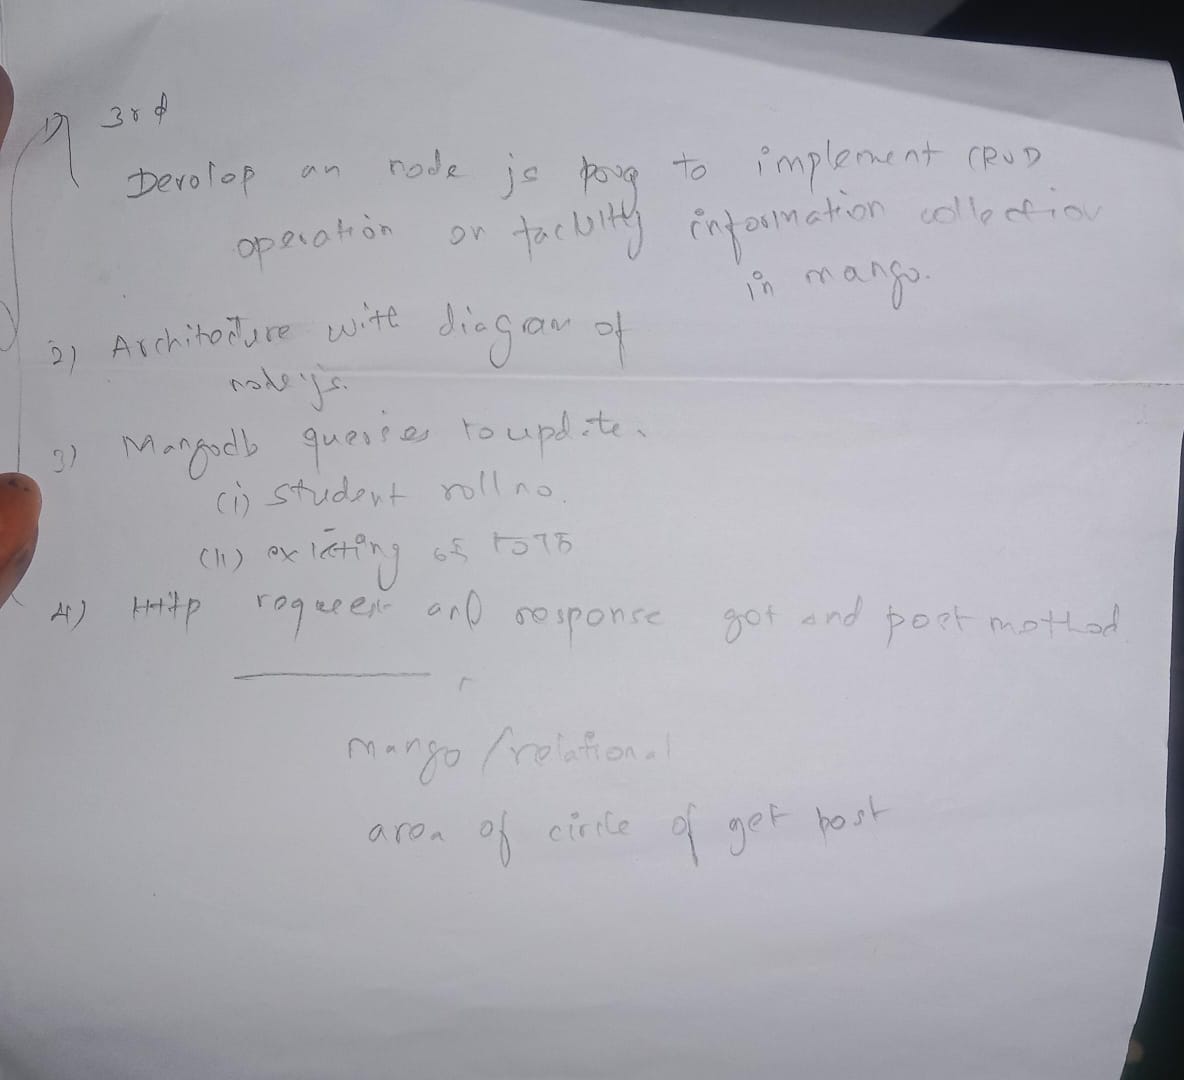 1) 3rd
Develop an node js prog to implement CRUD
operation on faculty information collection
in mango.
2) Architecture with diagram of
node js.
3) Mangodb queries to update.
(i) student roll no.
(ii) existing 65 to 75
4) Http request and response get and post method
mango / relational
area of circle of get post